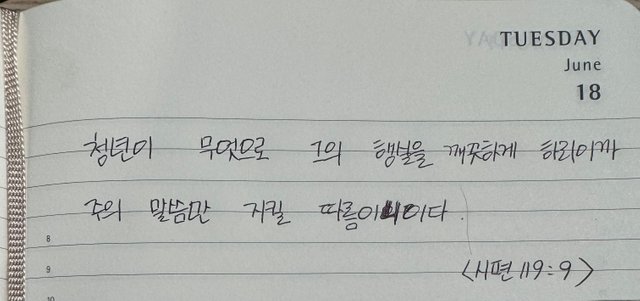 TUESDAY
June
18
청년이 무엇으로 그의 행실을 깨끗하게 하리이까
주의 말씀만 지킬 따름이니이다.
8
<시편 119:9>
9
10